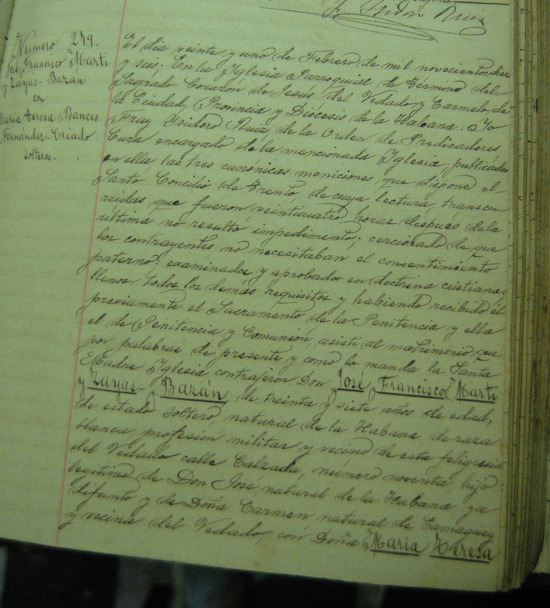 Fr. Isidoro Ruiz
Número 279.
José Francisco Martí
y Zayas-Bazán
con
María Teresa Bances
Fernández Criado
solteros.
El dia veinte y uno de Febrero de mil novecientos diez
y seis. En la Iglesia Parroquial de término del
Sagrado Corazón de Jesús del Vedado y Carmelo de
la Ciudad, Provincia y Diócesis de la Habana: Yo
Fray Isidoro Ruiz de la Orden de Predicadores
Cura encargado de la mencionada Iglesia, publicadas
en ella las tres canónicas moniciones que dispone el
Santo Concilio de Trento de cuya lectura transcu
rridas que fueron veinticuatro horas despues de la
ultima no resultó impedimento; cerciorado de que
los contrayentes no necesitaban el consentimiento
paterno; examinados y aprobados en doctrina cristiana
llenos todos los demás requisitos y habiendo recibido él
previamente el Sacramento de la Penitencia y ella
el de Penitencia y Comunión, asisti al matrimonio que
por palabras de presente y como lo manda la Santa
Madre Iglesia contrajeron Don José Francisco Martí
y Zayas-Bazán de treinta y siete años de edad,
de estado soltero, natural de la Habana de raza
blanca, profesion militar y vecino de esta feligresia
del Vedado calle Calzada, número noventa, hijo
legitimo de Don José, natural de la Habana ya
difunto y de Doña Carmen natural de Camagüey
y vecina del Vedado, con Doña María Teresa